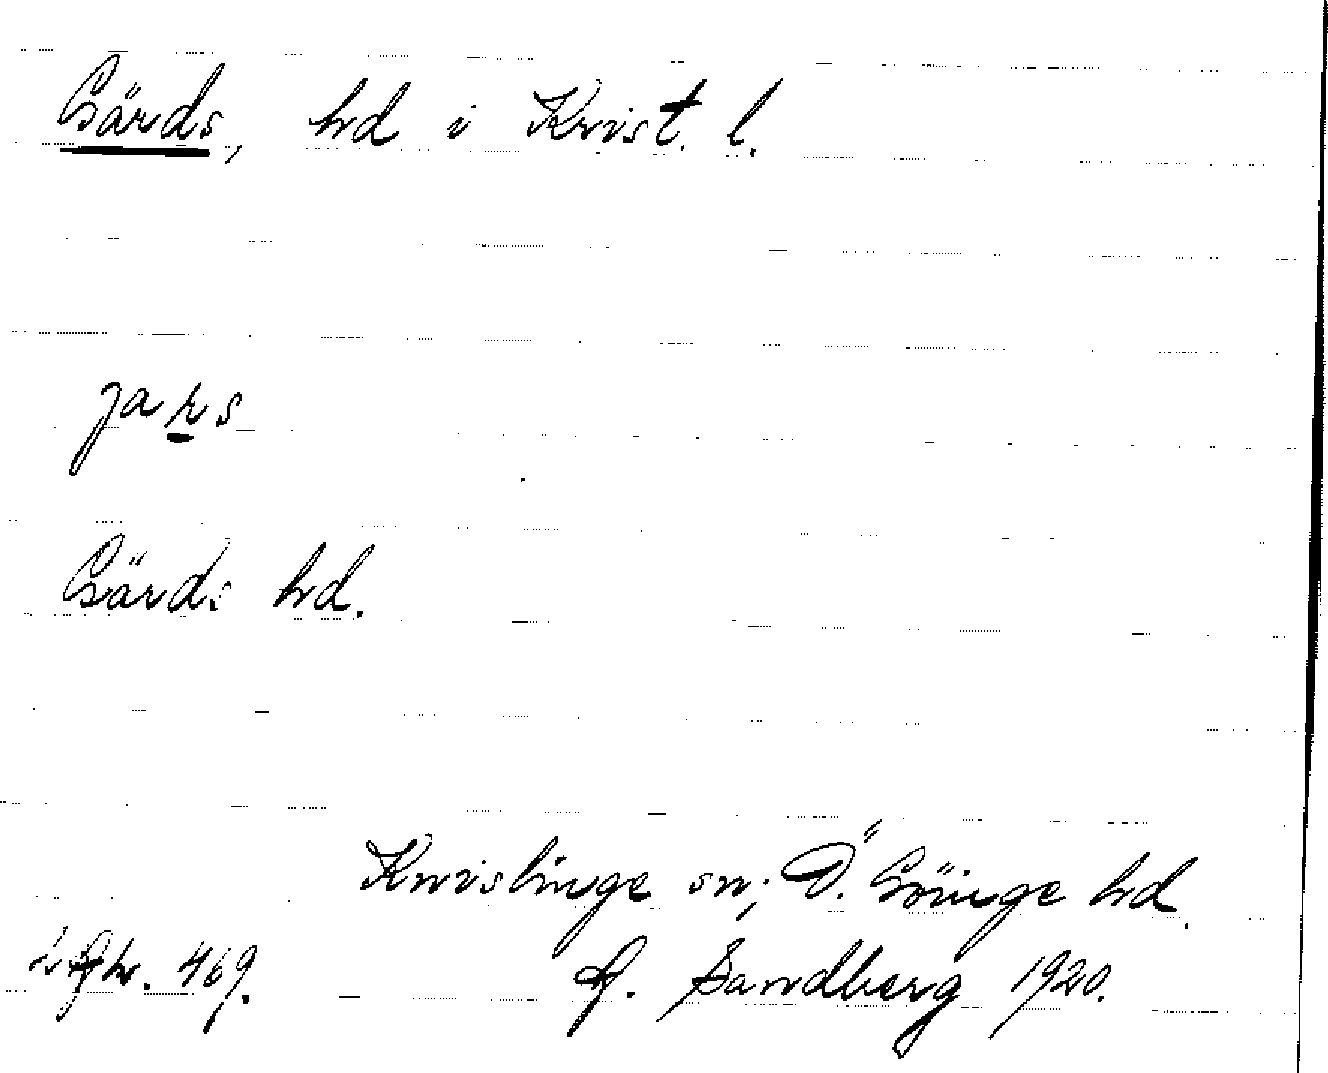 Gärds, hd i Krist. l.
jars
Gärds hd.
Knislinge sn; Ö. Göinge hd.
469. Sandberg 1920.